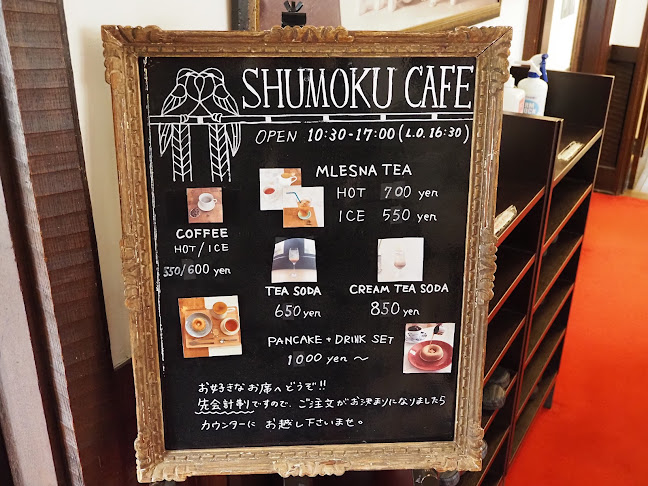 SHUMOKU CAFE
OPEN 10:30-17:00 (L.O. 16:30)
MLESNA TEA
HOT 700 yen
ICE 550 yen
COFFEE
HOT/ICE
550/600 yen
TEA SODA
650 yen
CREAM TEA SODA
850 yen
PANCAKE + DRINK SET
1000 yen ~
お好きなお席へどうぞ!!
先会計制ですので、ご注文がお決まりになりましたら
カウンターに お越し下さいませ。